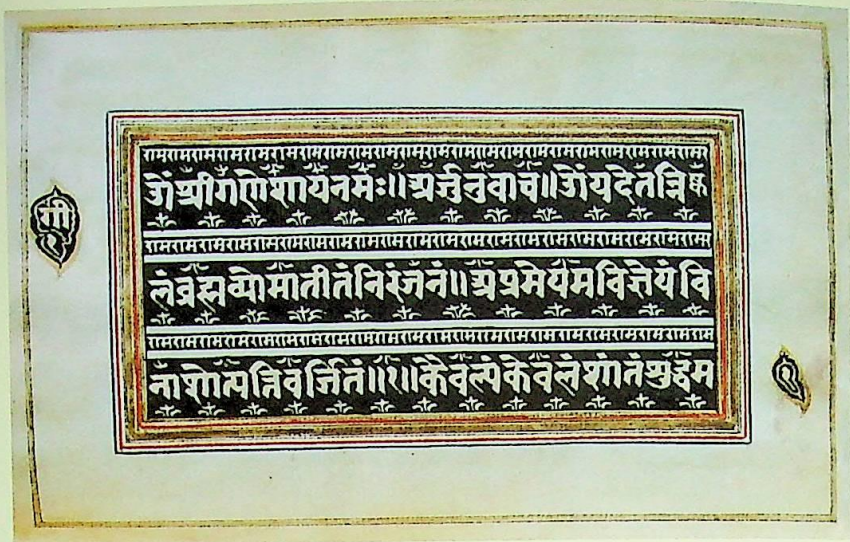 रामरामरामरामरामरामरामरामरामरामरामरामरामरामरामरामरामरामरामरामरामरामरामरामरामरामरामरामरामराम
ॐश्रीगणेशायनमः॥अर्जुनुवाच॥ॐयदेतन्निष्क
गी
रामरामरामरामरामरामरामरामरामरामरामरामरामरामरामरामरामरामरामरामरामरामरामरामरामरामरामरामरामराम
लंब्रह्मव्योमातीतंनिरंजनं॥अप्रमेयमविज्ञेयंवि
रामरामरामरामरामरामरामरामरामरामरामरामरामरामरामरामरामरामरामरामरामरामरामरामरामरामरामरामरामराम
नाशोत्पत्तिवर्जितं॥१॥कैवल्यंकेवलंशांतंशुद्धम